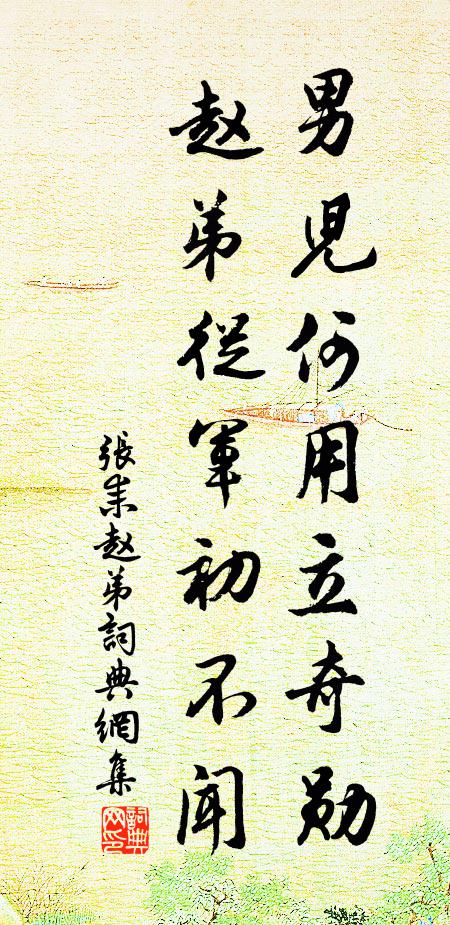 男兒何用立奇勋
赵弟從軍初不闻
張耒赵弟詞典網集
詞典网印